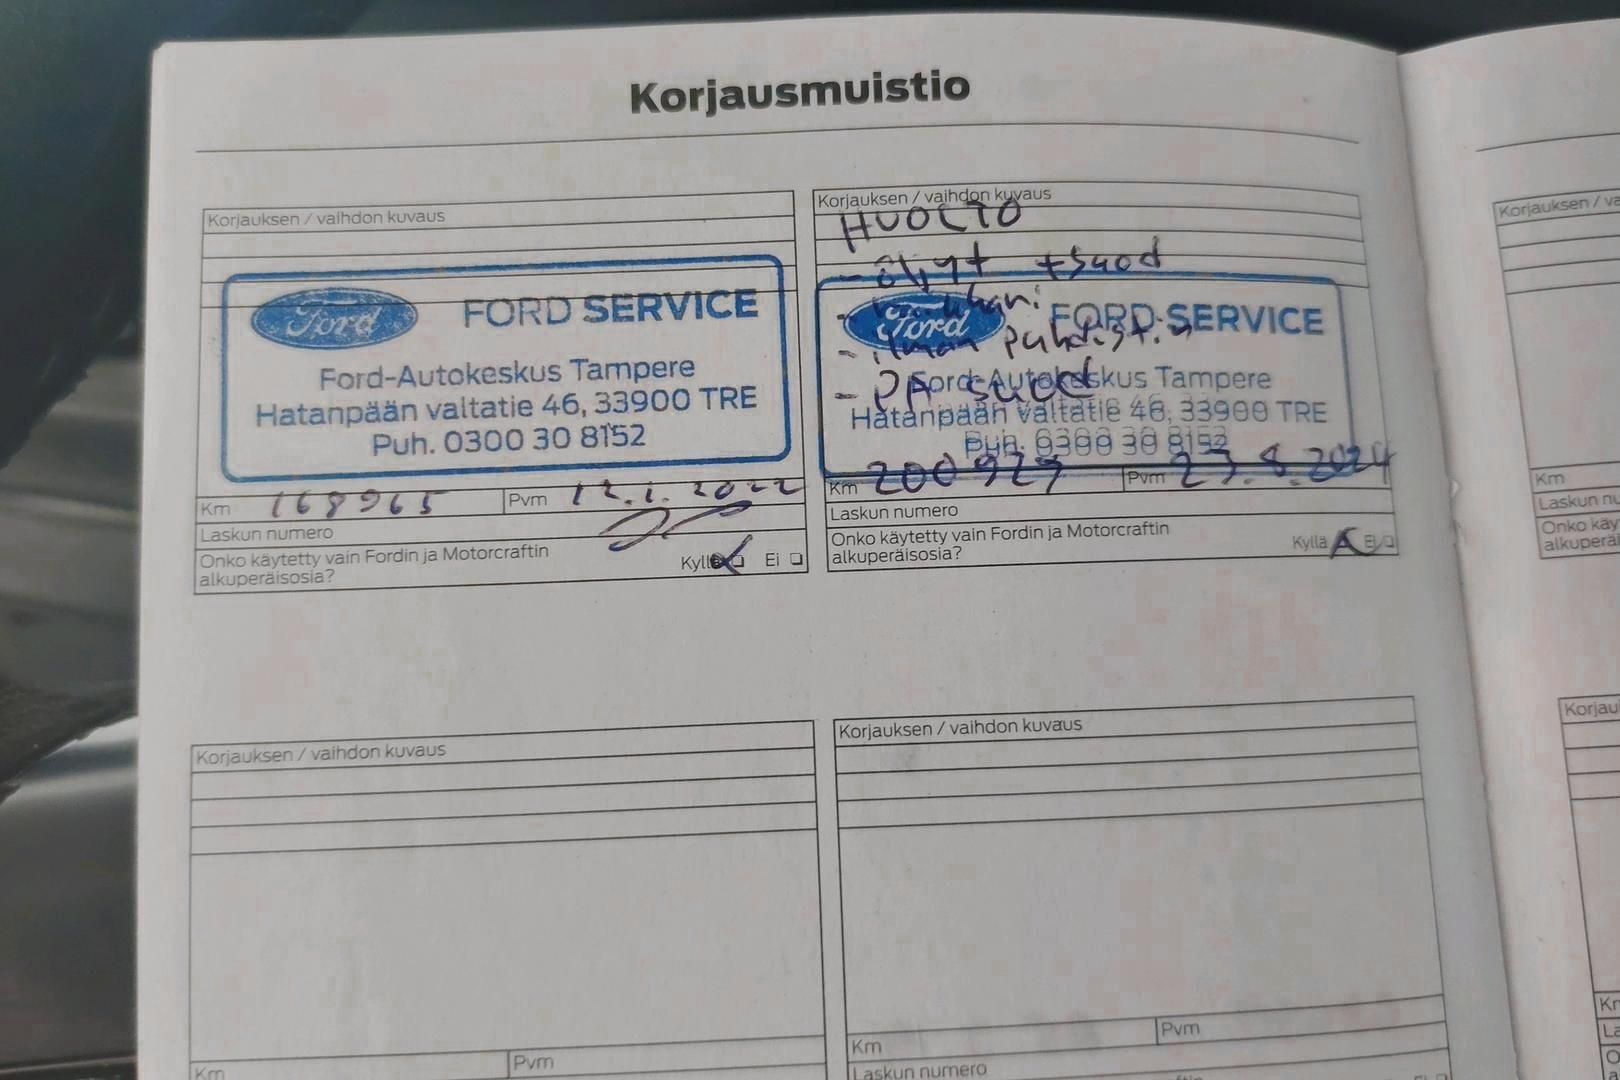 Korjausmuistio
Korjauksen / vaihdon kuvaus
Ford FORD SERVICE
Ford-Autokeskus Tampere
Hatanpään valtatie 46, 33900 TRE
Puh. 0300 30 8152
Km 168965 Pvm 12.1.2022
Laskun numero
Onko käytetty vain Fordin ja Motorcraftin
alkuperäisosia?
Kyllä Ei
Korjauksen / vaihdon kuvaus
HUOLTO
- öljyt + suod
- ilman puhdist.
- PA suod
Ford FORD SERVICE
Ford-Autokeskus Tampere
Hatanpään valtatie 46, 33900 TRE
Puh. 0300 30 8152
Km 200929 Pvm 23.8.2024
Laskun numero
Onko käytetty vain Fordin ja Motorcraftin
alkuperäisosia?
Kyllä Ei
Korjauksen / va
Km
Laskun nu
Onko käy
alkuperäi
Korjauksen / vaihdon kuvaus
Km Pvm
Korjauksen / vaihdon kuvaus
Km Pvm
Laskun numero
Korjau